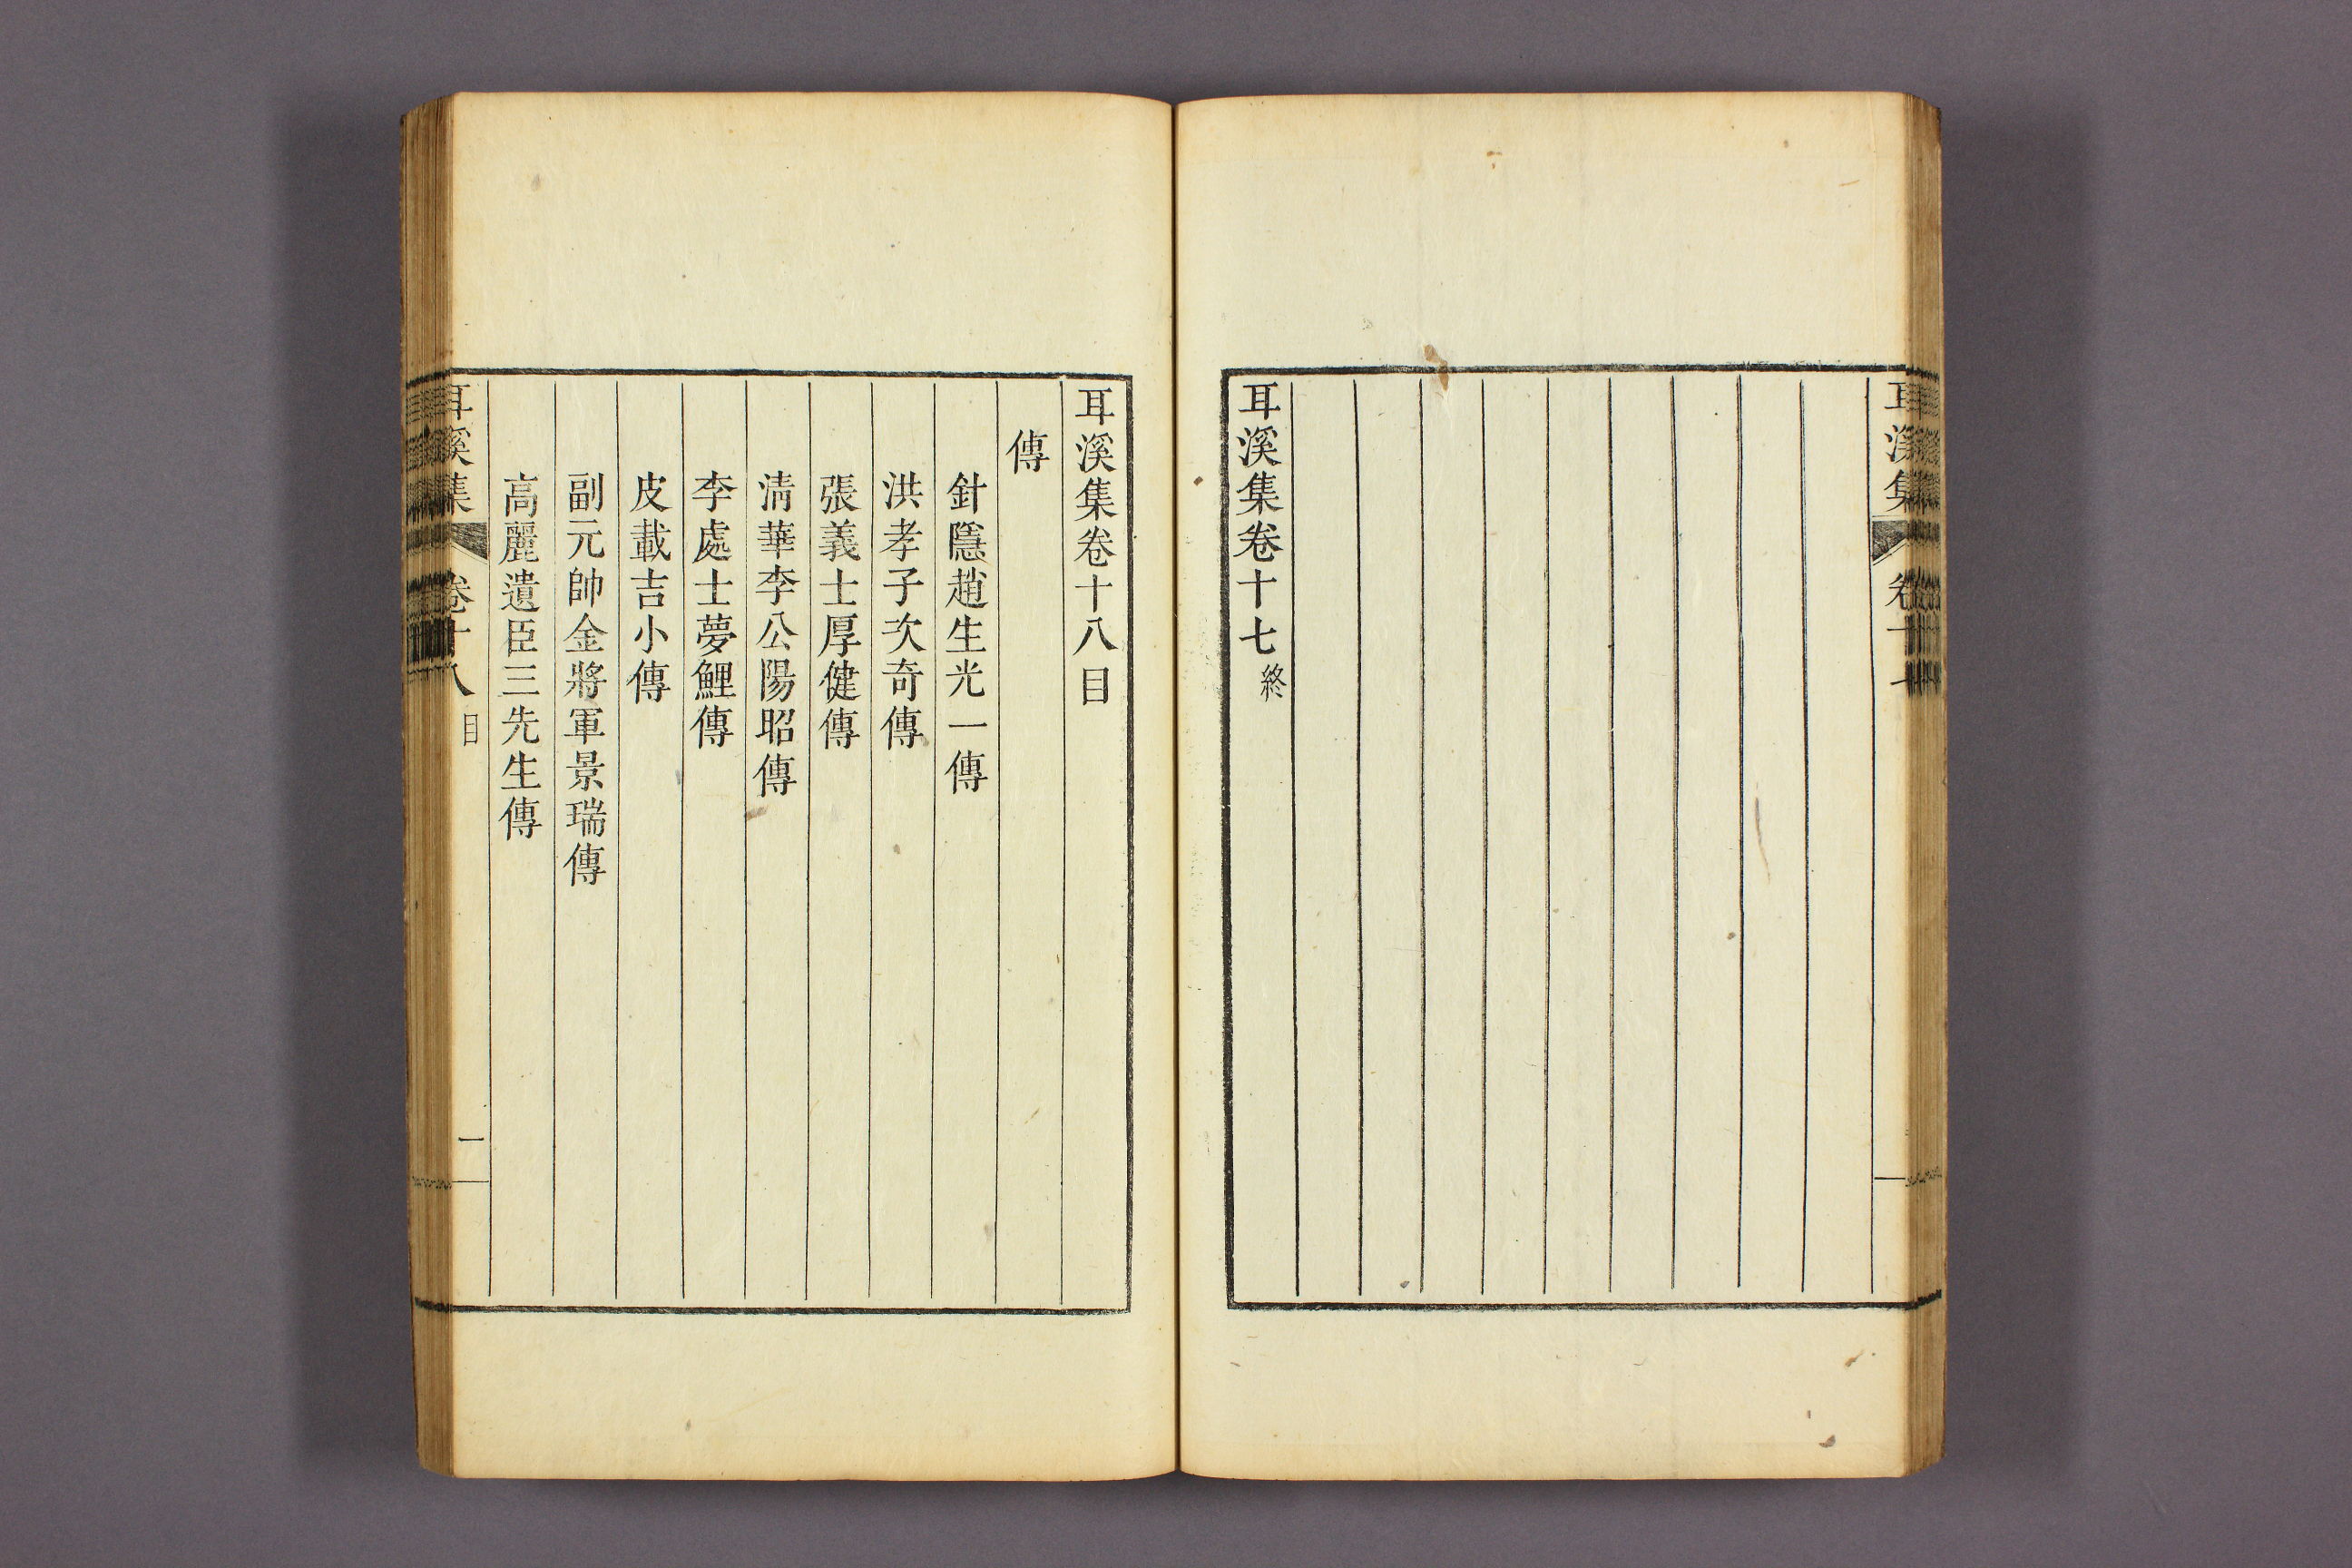 耳溪集 卷十七
耳溪集卷十七終
耳溪集卷十八目
傳
針隱趙生光一傳
洪孝子次奇傳
張義士厚健傳
淸華李公陽昭傳
李處士夢鯉傳
皮載吉小傳
副元帥金將軍景瑞傳
高麗遺臣三先生傳
耳溪集 卷十八 目 一